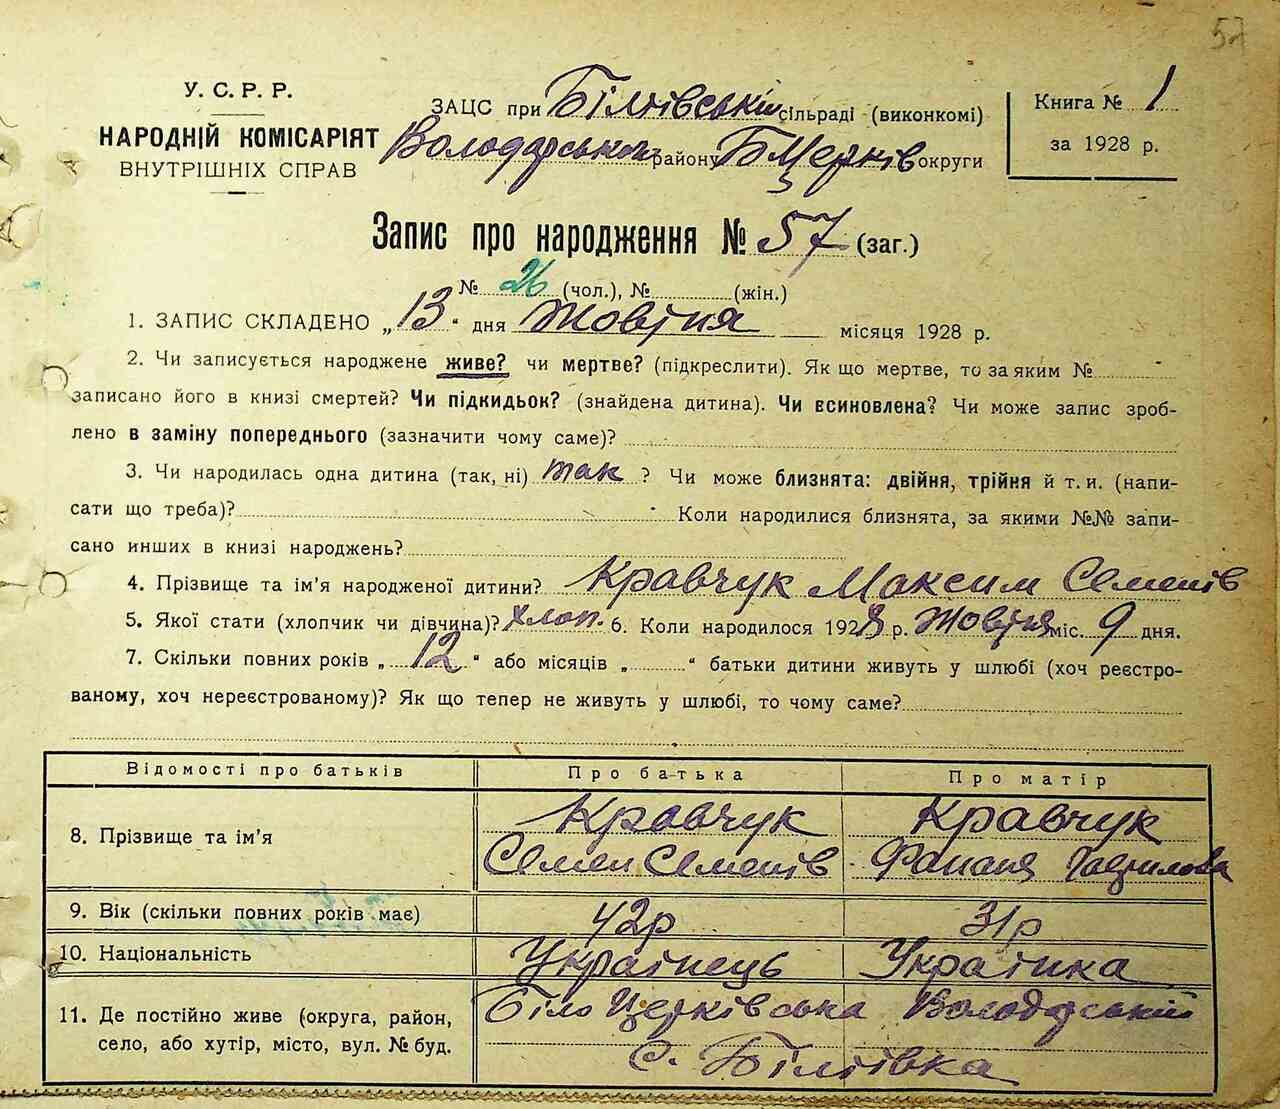 57
У. С. Р. Р.
НАРОДНІЙ КОМІСАРІЯТ
ВНУТРІШНІХ СПРАВ
ЗАЦС при Біліївській сільраді (виконкомі)
Володарського району БЦерків округи
Книга № 1
за 1928 р.
Запис про народження № 57 (заг.)
№ 26 (чол.), № (жін.)
1. ЗАПИС СКЛАДЕНО „13" дня Жовтня місяця 1928 р.
2. Чи записується народжене живе? чи мертве? (підкреслити). Як що мертве, то за яким №
записано його в книзі смертей? Чи підкидьок? (знайдена дитина). Чи всиновлена? Чи може запис зроб-
лено в заміну попереднього (зазначити чому саме)?
3. Чи народилась одна дитина (так, ні) так ? Чи може близнята: двійня, трійня й т. и. (напи-
сати що треба)? Коли народилися близнята, за якими №№ запи-
сано инших в книзі народжень?
4. Прізвище та ім'я народженої дитини? Кравчук Максим Семенів
5. Якої стати (хлопчик чи дівчина)? хлоп. 6. Коли народилося 1928 р. Жовтня міс. 9 дня.
7. Скільки повних років „12" або місяців „ " батьки дитини живуть у шлюбі (хоч реєстро-
ваному, хоч нереєстрованому)? Як що тепер не живуть у шлюбі, то чому саме?
Відомості про батьків Про батька Про матір
8. Прізвище та ім'я Кравчук Кравчук
Семен Семенів Фананя Гаврилова
9. Вік (скільки повних років має) 42р 31р
10. Національність Українець Українка
11. Де постійно живе (округа, район, Біло Церківська Володарський
село, або хутір, місто, вул. № буд. с. Біліївка